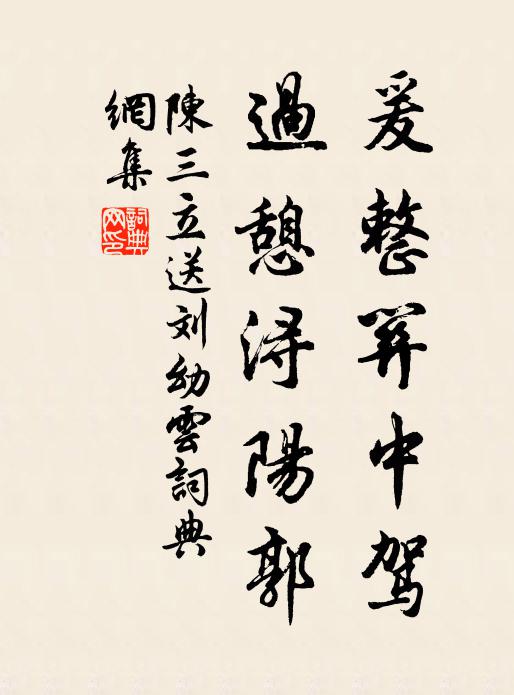 爰整關中駕
過憩潯陽郭
陳三立送刘幼雲詞典
網集
詞典
网印